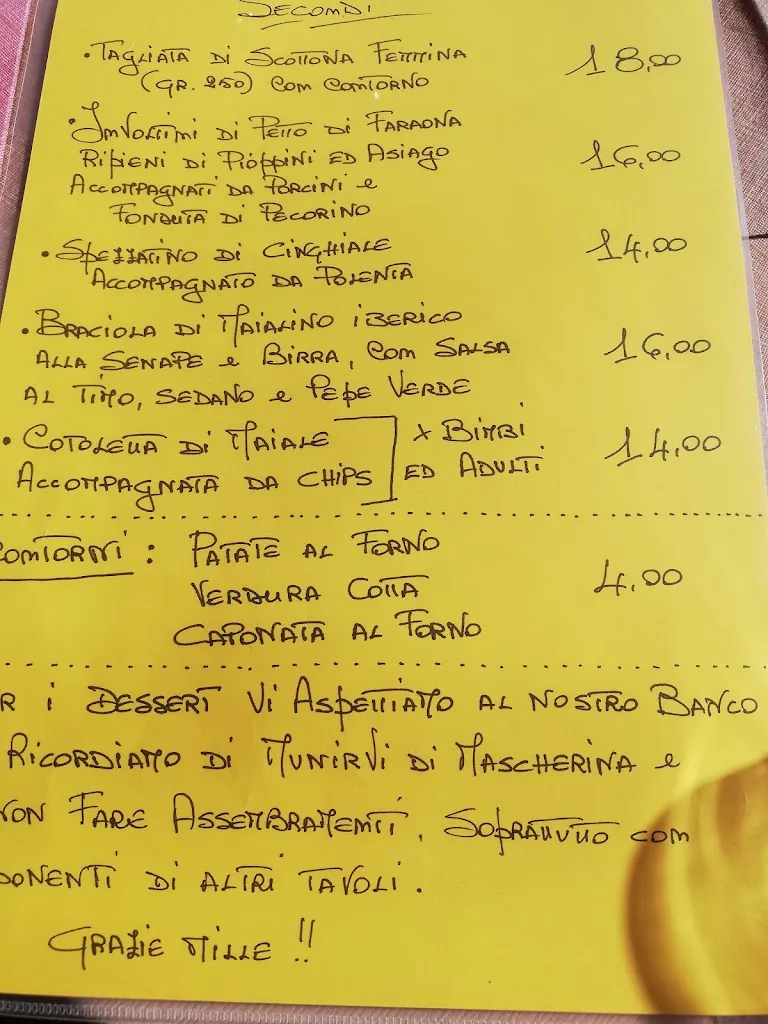 SECONDI
• TAGLIATA DI SCOTTONA FEMMINA 18,00
(GR. 250) CON CONTORNO
• INVOLTINI DI PETTO DI FARAONA
RIPIENI DI PIOPPINI ED ASIAGO 16,00
ACCOMPAGNATI DA PORCINI e
FONDUTA DI PECORINO
• SPEZZATINO DI CINGHIALE 14,00
ACCOMPAGNATO DA POLENTA
• BRACIOLA DI MAIALINO IBERICO
ALLA SENAPE e BIRRA, CON SALSA 16,00
AL TIMO, SEDANO e PEPE VERDE
• COTOLETTA DI MAIALE X BIMBI 14,00
ACCOMPAGNATA DA CHIPS ED ADULTI
CONTORNI: PATATE AL FORNO
VERDURA COTTA 4,00
CAPONATA AL FORNO
R I DESSERT VI ASPETTIAMO AL NOSTRO BANCO
RICORDIAMO DI MUNIRVI DI MASCHERINA e
NON FARE ASSEMBRAMENTI, SOPRATTUTTO CON
PONENTI DI ALTRI TAVOLI.
GRAZIE MILLE !!